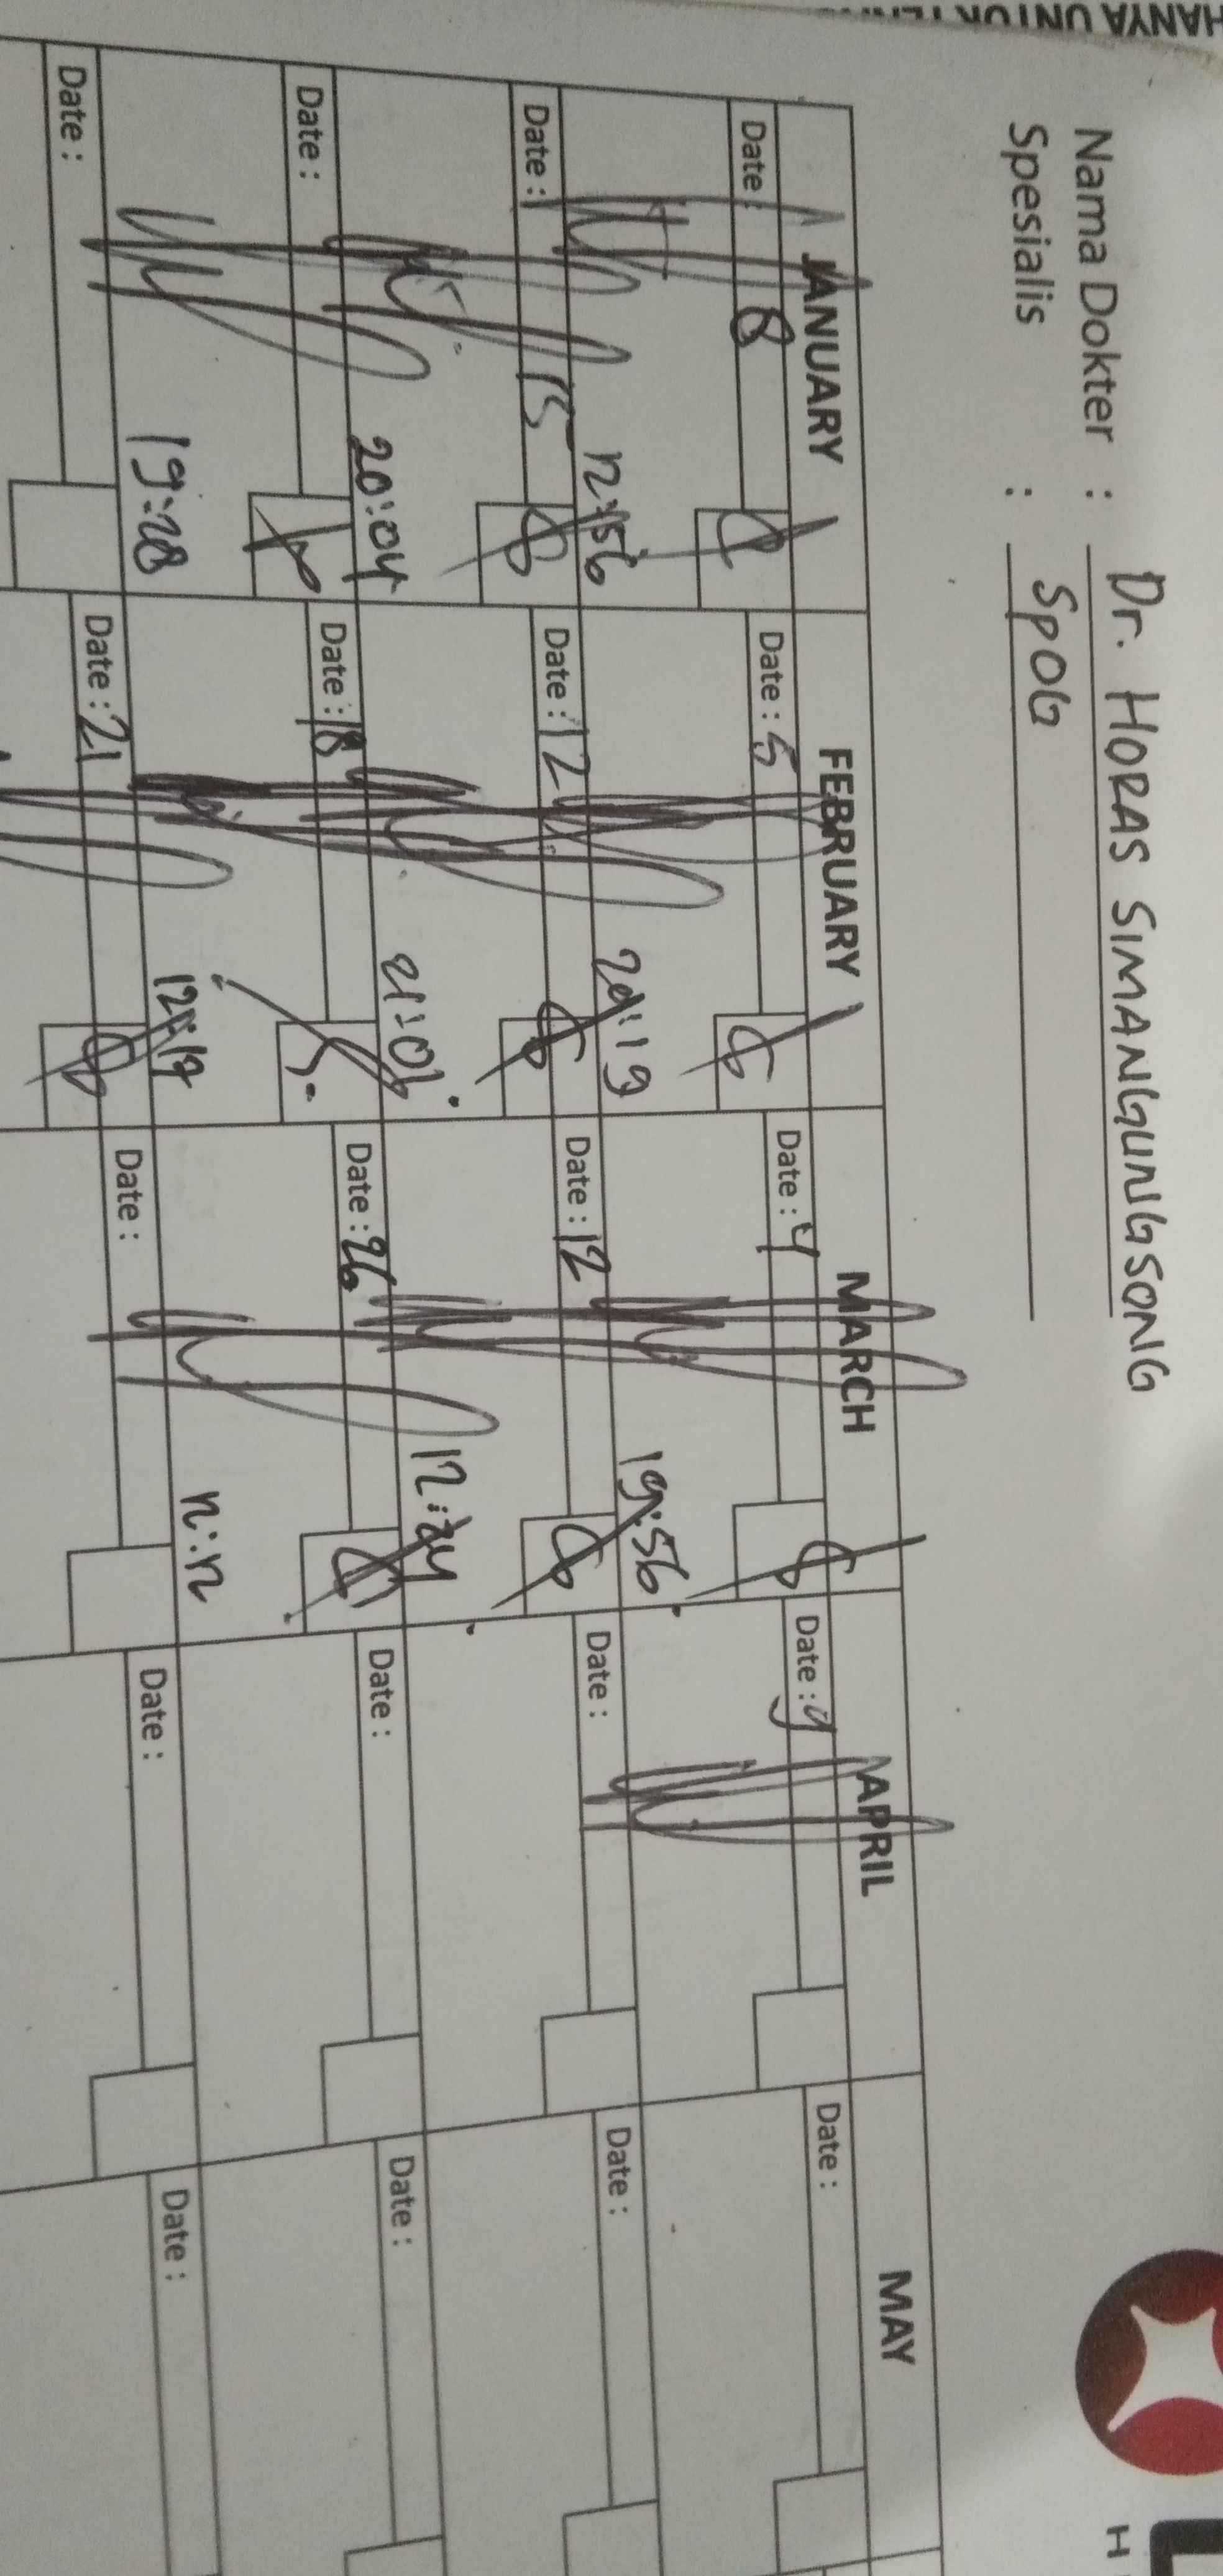 HANYA UNTUK
Nama Dokter : Dr. HORAS SIMANGUNGSONG
Spesialis : SpOG
L
H
JANUARY FEBRUARY MARCH APRIL MAY
Date : 8 Date : 5 Date : 4 Date : 9 Date :
12:56 20:19 19:56
Date : 15 Date : 12 Date : 12 Date : Date :
20:04 21:01 12:24
Date : Date : 18 Date : 26 Date : Date :
19:28 12:19 12:12
Date : Date : 21 Date : Date : Date :